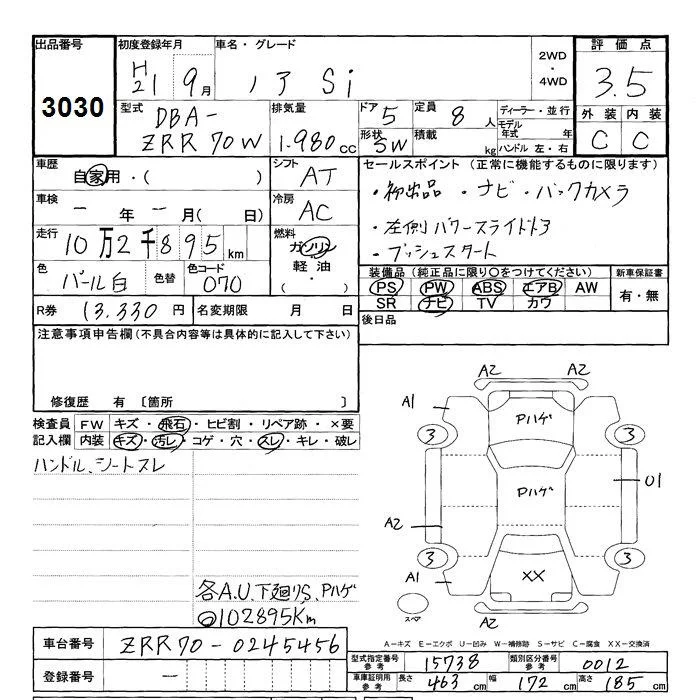 出品番号 初度登録年月 車名・グレード 2WD・4WD 評価点
3030 H21 9月 ノア Si 3.5
型式 排気量 ドア 定員 ディーラー・並行 外装 内装
DBA-ZRR70W 1.980cc 5 8人 モデル年式 年 C C
形状 SW 積載 kg ハンドル 左・右
車歴 自家用・( ) シフト AT
セールスポイント (正常に機能するものに限ります)
・初出品 ・ナビ ・バックカメラ
車検 ー年ー月( 日) 冷房 AC
・左側パワースライドドア
走行 10万2千895km 燃料 ガソリン 軽油・( )
・プッシュスタート
色 パール白 色替 色コード 070
装備品 (純正品に限り○をつけてください) 新車保証書
PS PW ABS エアB AW 有・無
SR ナビ TV カワ
R券 13.330円 名変期限 月 日
後日品
注意事項申告欄(不具合内容等は具体的に記入して下さい)
修復歴 有 〔箇所 〕
検査員 FW キズ・飛石・ヒビ割・リペア跡・×要
記入欄 内装 キズ・汚レ・コゲ・穴・スレ・キレ・破レ
ハンドル、シートスレ
各A.U.下廻りS、Pハゲ
102895Km
A2 A2
A1 Pハゲ
3 3
Pハゲ 01
A2
3 3
A1 XX
スペア A2
A-キズ E-エクボ U-凹み W-補修跡 S-サビ C-腐食 XX-交換済
車台番号 ZRR70-0245456
型式指定番号 参考 15738 類別区分番号 参考 0012
登録番号 ー
車庫証明用 参考 長さ 463cm 幅 172cm 高さ 185cm